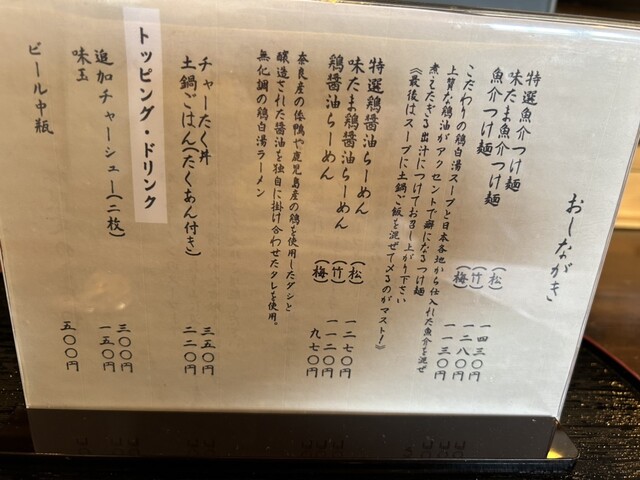 おしながき
特選魚介つけ麺 (松) 一四三〇円
味たま魚介つけ麺 (竹) 一二八〇円
魚介つけ麺 (梅) 一一三〇円
こだわりの鶏白湯スープと日本各地から仕入れた魚介を混ぜ
上質な鶏油がアクセントで癖になるつけ麺
煮えたぎる出汁につけてお召し上がり下さい
《最後はスープに土鍋ご飯を混ぜて〆るのがマスト!》
特選鶏醤油らーめん (松) 一二七〇円
味たま鶏醤油らーめん (竹) 一一二〇円
鶏醤油らーめん (梅) 九七〇円
奈良産の倭鴨や鹿児島産の鶏を使用したダシと
醸造された醤油を独自に掛け合わせたタレを使用。
無化調の鶏白湯ラーメン
チャーたく丼 三五〇円
土鍋ごはん(たくあん付き) 二二〇円
トッピング・ドリンク
追加チャーシュー(二枚) 三〇〇円
味玉 一五〇円
ビール中瓶 五〇〇円